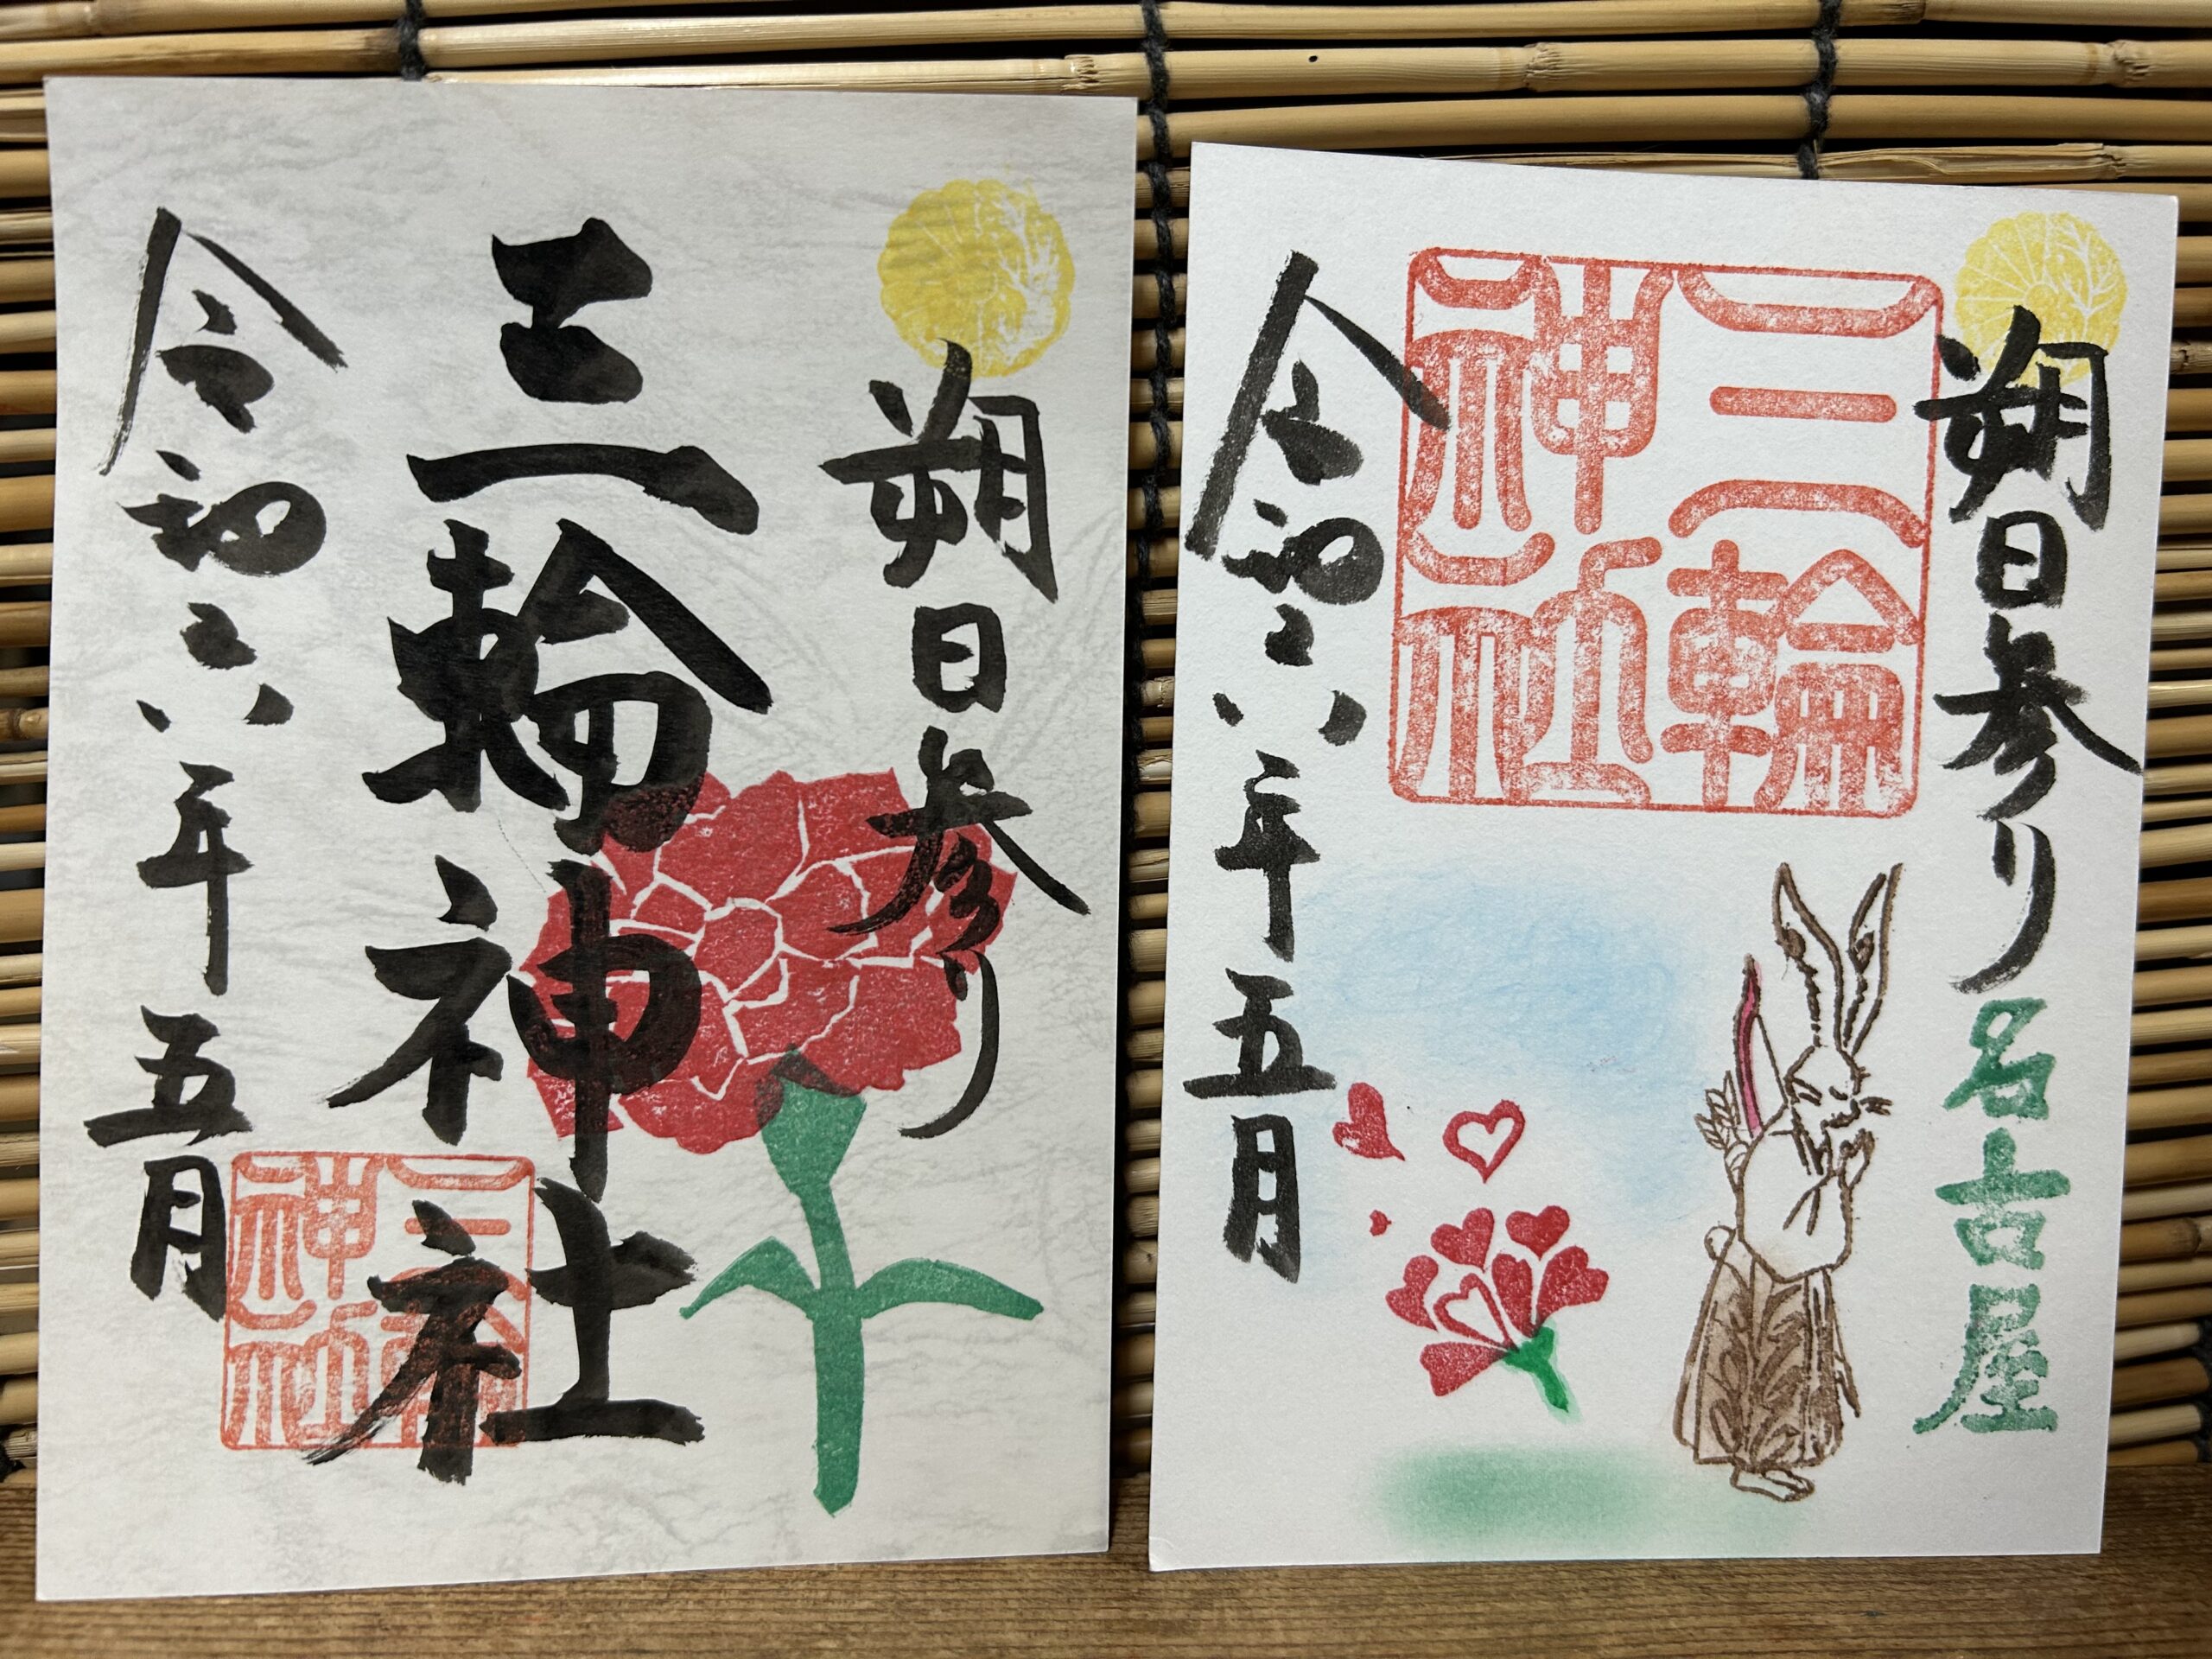 朔日参り
三輪神社
三輪神社
令和六年五月
朔日参り
名古屋
三輪神社
令和六年五月